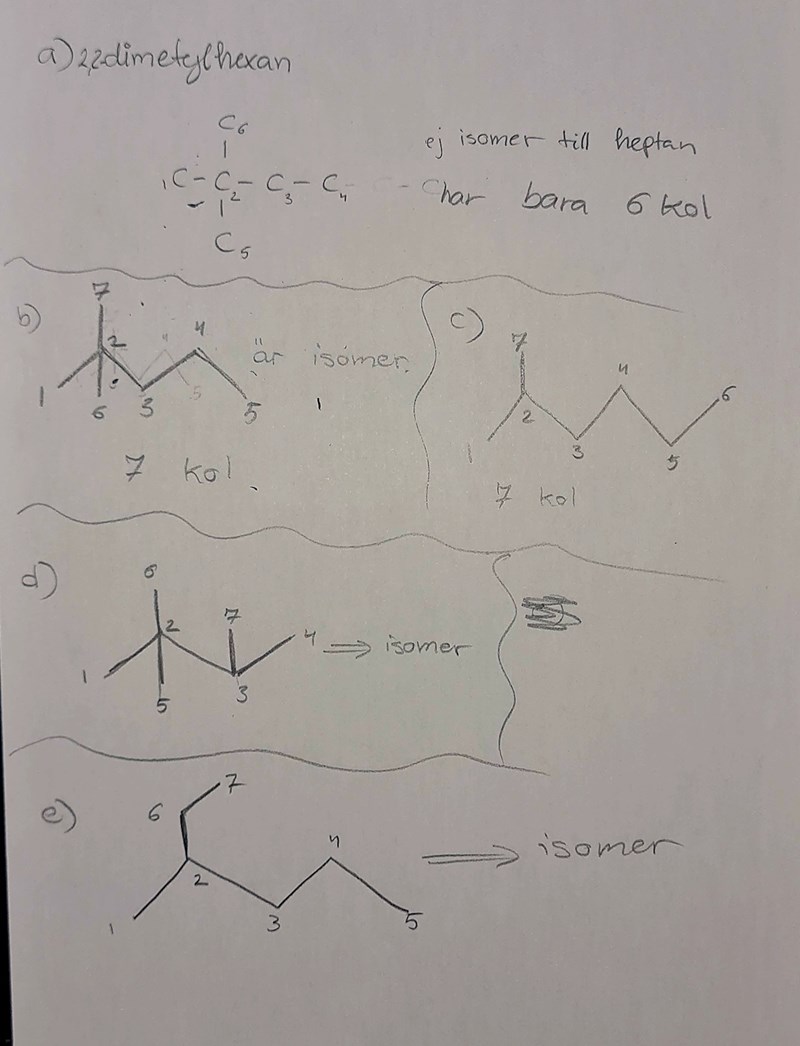 a) 2,2dimetylhexan
C6
1C - C2 - C3 - C4
C5
ej isomer till heptan
har bara 6 kol
b)
7
2
4
1
6
3
5
är isomer.
7 kol.
c)
7
4
6
1
2
3
5
7 kol
d)
6
2
7
4
1
5
3
⇒ isomer
e)
7
6
4
2
1
3
5
⇒ isomer